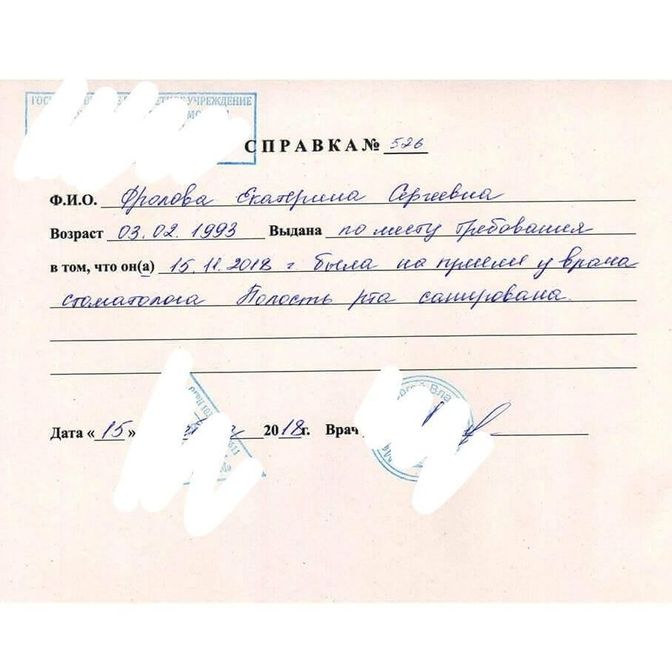 ГОС УЧРЕЖДЕНИЕ
СПРАВКА № 526
Ф.И.О. Фролова Екатерина Сергеевна
Возраст 03.02.1993 Выдана по месту требования
в том, что он(а) 15.11.2018 г была на приеме у врача
стоматолога Полость рта санирована.
Дата «15» 2018г. Врач